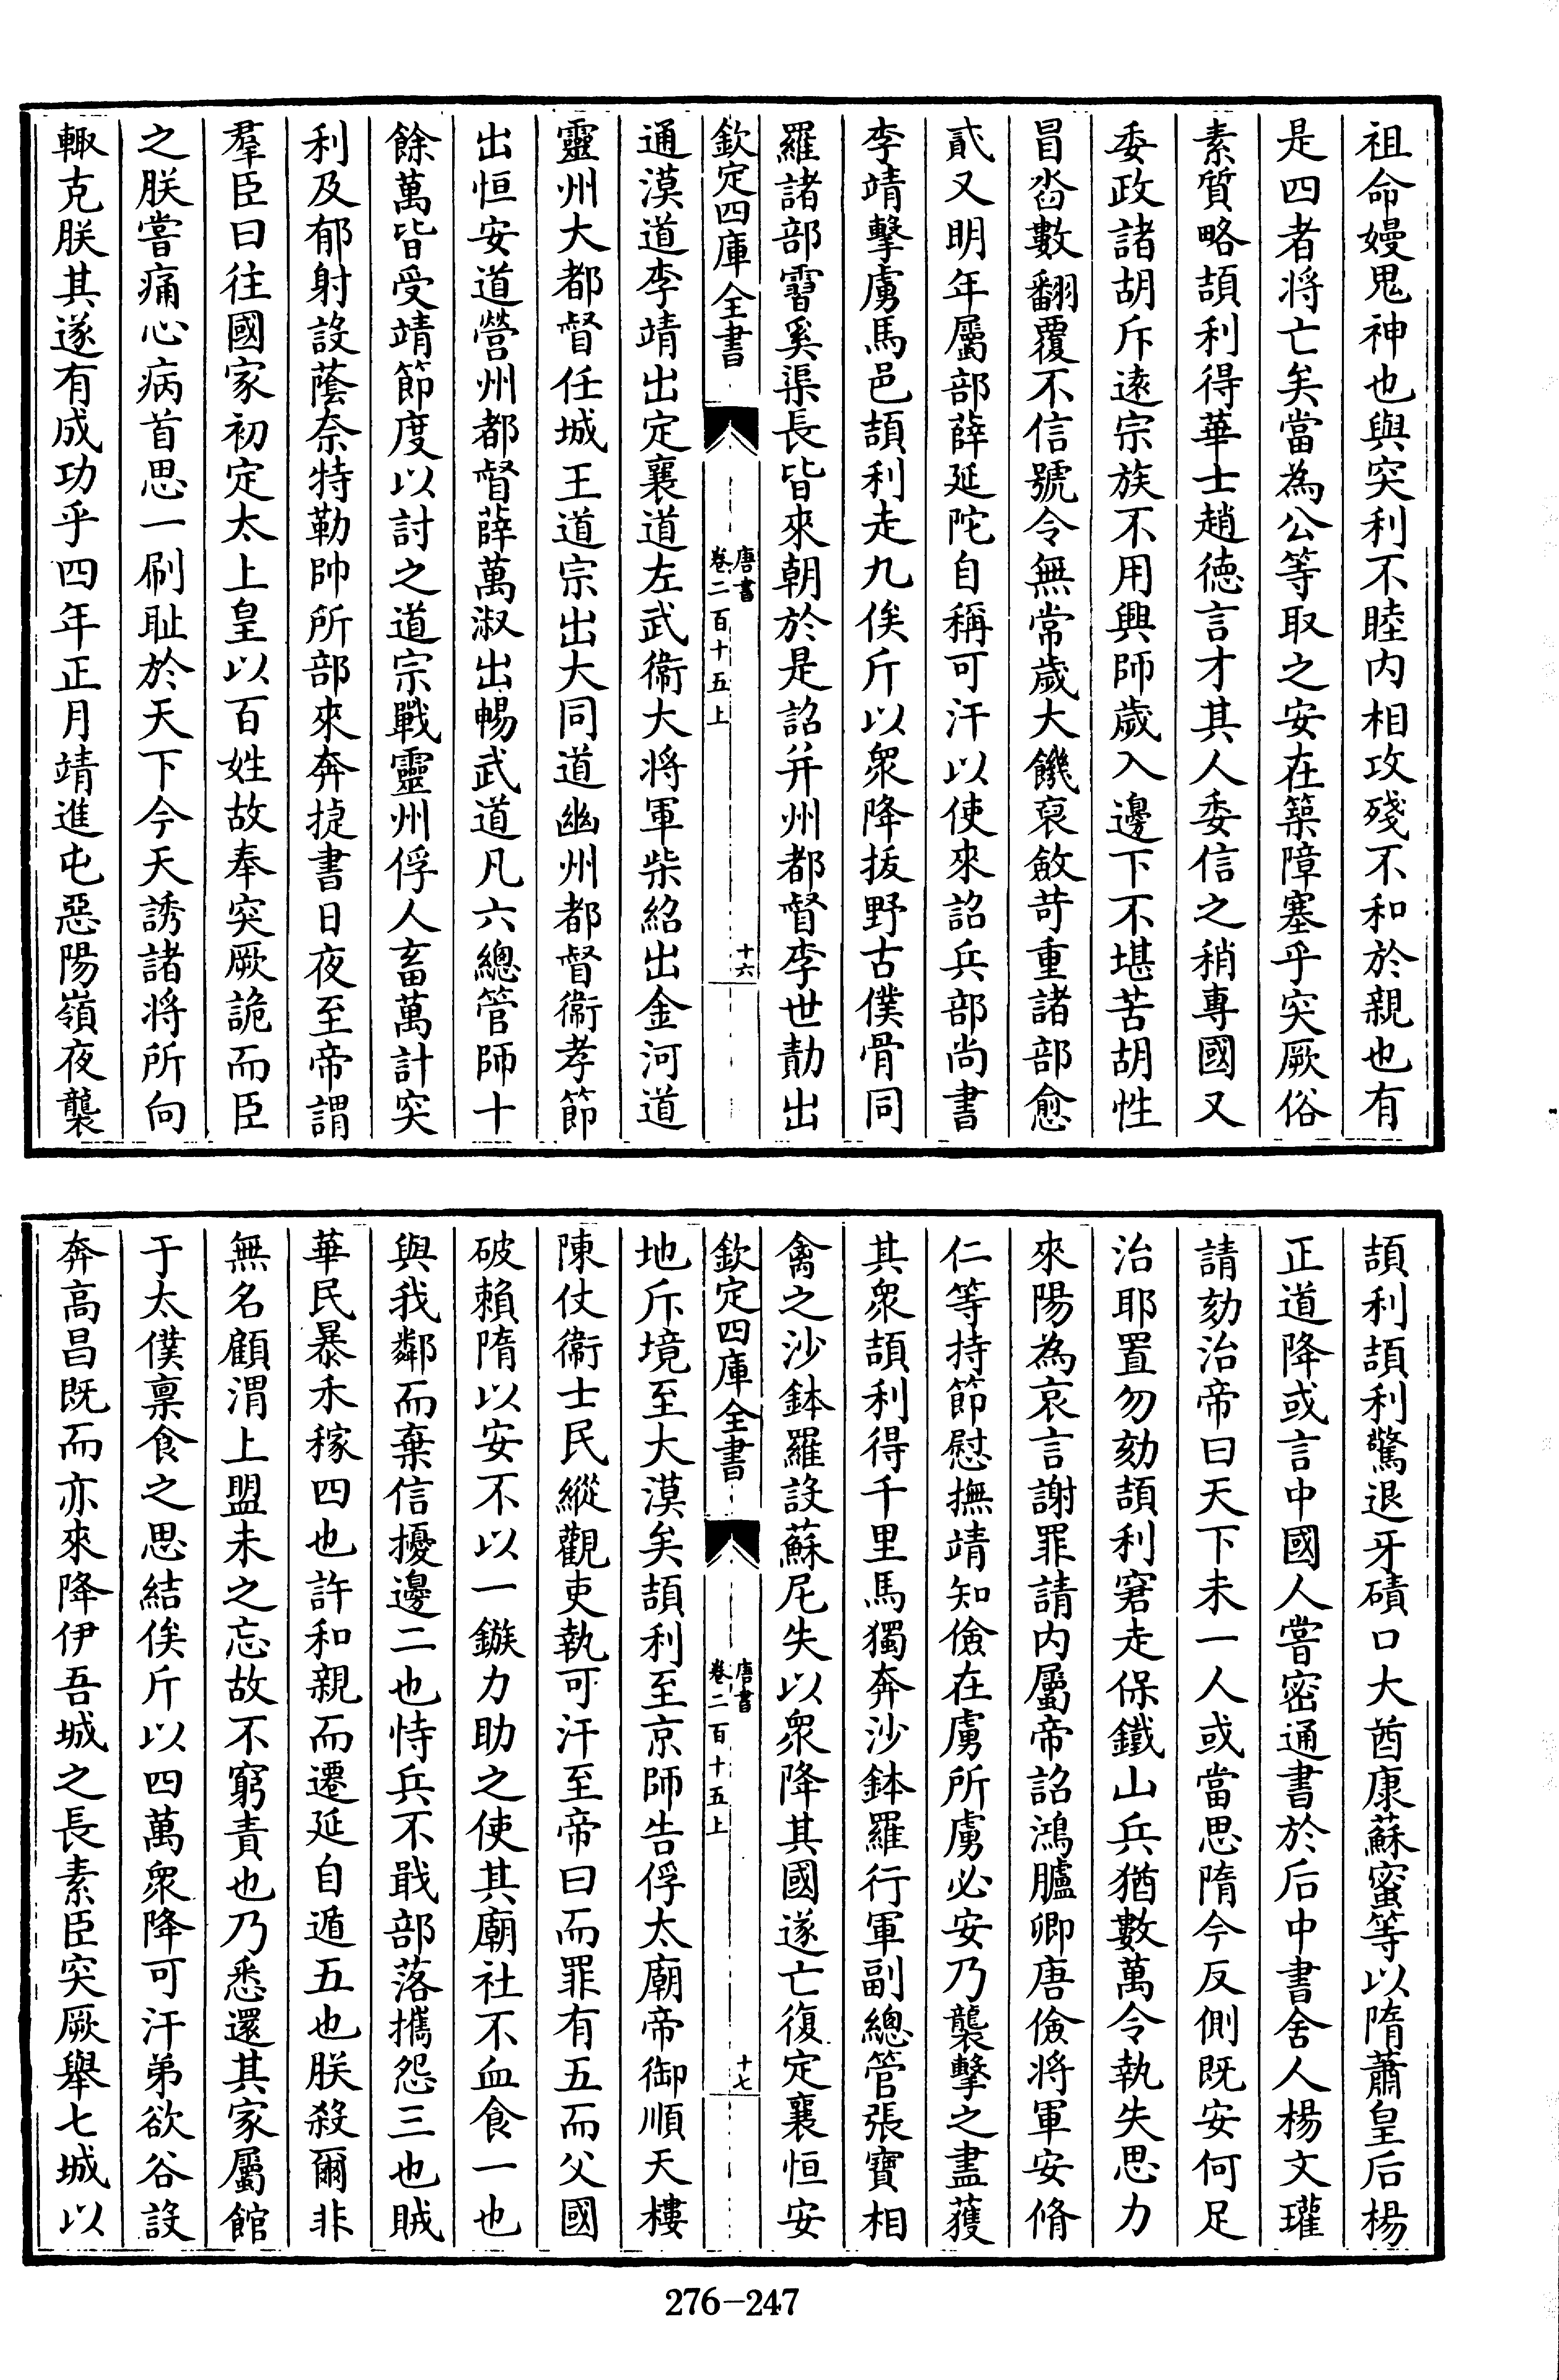 祖命嫚鬼神也與突利不睦内相攻殘不和於親也有
是四者將亡矣當為公等取之安在築障塞乎突厥俗
素質略頡利得華士趙德言才其人委信之稍專國又
委政諸胡斥遠宗族不用興師歲入邊下不堪苦胡性
冒沓數翻覆不信號令無常歲大饑裒斂苛重諸部愈
貳又明年屬部薛延陀自稱可汗以使來詔兵部尚書
李靖擊虜馬邑頡利走九俟斤以衆降拔野古僕骨同
羅諸部霫奚渠長皆來朝於是詔并州都督李世勣出
欽定四庫全書
唐書
卷二百十五上
十六
通漠道李靖出定襄道左武衞大將軍柴紹出金河道
靈州大都督任城王道宗出大同道幽州都督衞孝節
出恒安道營州都督薛萬淑出暢武道凡六總管師十
餘萬皆受靖節度以討之道宗戰靈州俘人畜萬計突
利及郁射設蔭奈特勒帥所部來奔捷書日夜至帝謂
羣臣曰往國家初定太上皇以百姓故奉突厥詭而臣
之朕嘗痛心病首思一刷耻於天下今天誘諸將所向
輙克朕其遂有成功乎四年正月靖進屯惡陽嶺夜襲
頡利頡利驚退牙磧口大酋康蘇蜜等以隋蕭皇后楊
正道降或言中國人嘗密通書於后中書舍人楊文瓘
請劾治帝曰天下未一人或當思隋今反側既安何足
治耶置勿劾頡利窘走保鐵山兵猶數萬令執失思力
來陽為哀言謝罪請内屬帝詔鴻臚卿唐儉將軍安脩
仁等持節慰撫靖知儉在虜所虜必安乃襲擊之盡獲
其衆頡利得千里馬獨奔沙鉢羅行軍副總管張寶相
禽之沙鉢羅設蘇尼失以衆降其國遂亡復定襄恒安
欽定四庫全書
唐書
卷二百十五上
十七
地斥境至大漠矣頡利至京師告俘太廟帝御順天樓
陳仗衞士民縱觀吏執可汗至帝曰而罪有五而父國
破賴隋以安不以一鏃力助之使其廟社不血食一也
與我鄰而棄信擾邊二也恃兵不戢部落攜怨三也賊
華民暴禾稼四也許和親而遷延自遁五也朕殺爾非
無名顧渭上盟未之忘故不窮責也乃悉還其家屬館
于太僕稟食之思結俟斤以四萬衆降可汗弟欲谷設
奔高昌既而亦來降伊吾城之長素臣突厥舉七城以
276-247